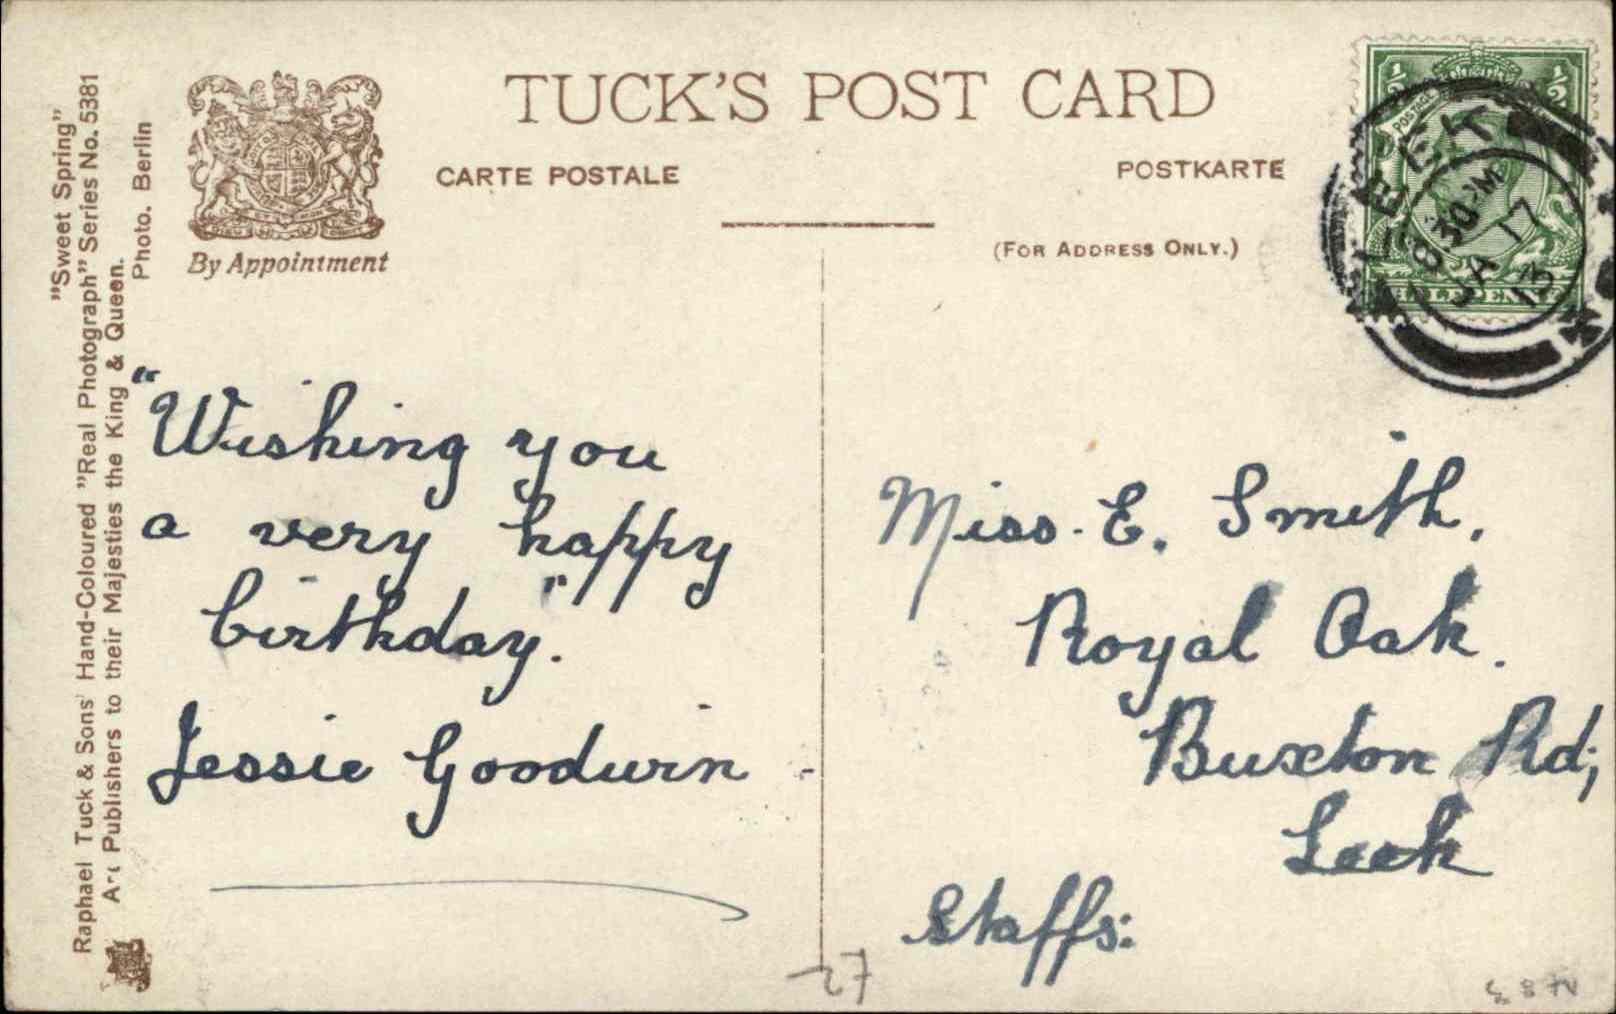 TUCK'S POST CARD
CARTE POSTALE
POSTKARTE
(FOR ADDRESS ONLY.)
By Appointment
"Sweet Spring"
Raphael Tuck & Sons' Hand-Coloured "Real Photograph" Series No. 5381
Art Publishers to their Majesties the King & Queen.
Photo. Berlin
1/2 1/2
POSTAGE
HALFPENNY
8 30 PM
JA 17
13
"Wishing you
a very happy
birthday."
Jessie Goodwin
Miss. E. Smith.
Royal Oak.
Buxton Rd;
Leek
Staffs:
27